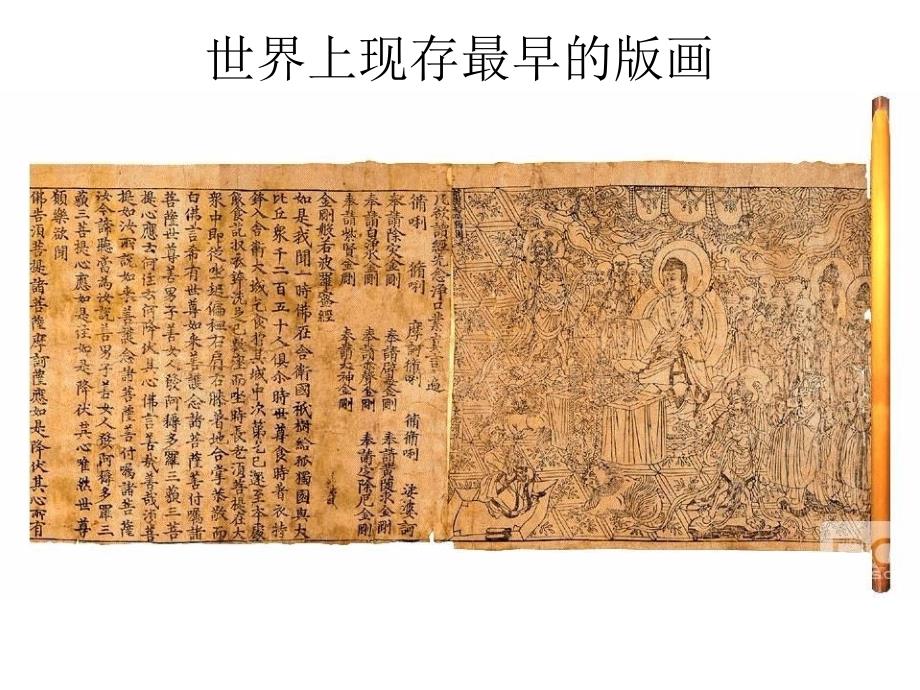 世界上现存最早的版画
凡欲讀經先念淨口業真言一遍
脩唎 脩唎 摩訶脩唎 脩脩唎 娑婆訶
奉請除灾金剛 奉請辟毒金剛 奉請黃随求金剛
奉請白淨水金剛 奉請赤聲金剛 奉請定除厄金剛
奉請紫賢金剛 奉請大神金剛
金剛般若波羅蜜經
如是我聞一時佛在舍衛國祇樹給孤獨園與大
比丘衆千二百五十人俱尒時世尊食時著衣持
鉢入舍衛大城乞食於其城中次第乞已還至本處
飯食訖收衣鉢洗足已敷座而坐時長老須菩提在大
衆中即從座起偏袒右肩右膝著地合掌恭敬而
白佛言希有世尊如來善護念諸菩薩善付囑諸
菩薩世尊善男子善女人發阿耨多羅三藐三菩
提心應云何住云何降伏其心佛言善哉善哉須菩
提如汝所說如來善護念諸菩薩善付囑諸菩薩
汝今諦聽當為汝說善男子善女人發阿耨多羅三
藐三菩提心應如是住如是降伏其心唯然世尊
願樂欲聞
佛告須菩提諸菩薩摩訶薩應如是降伏其心所有